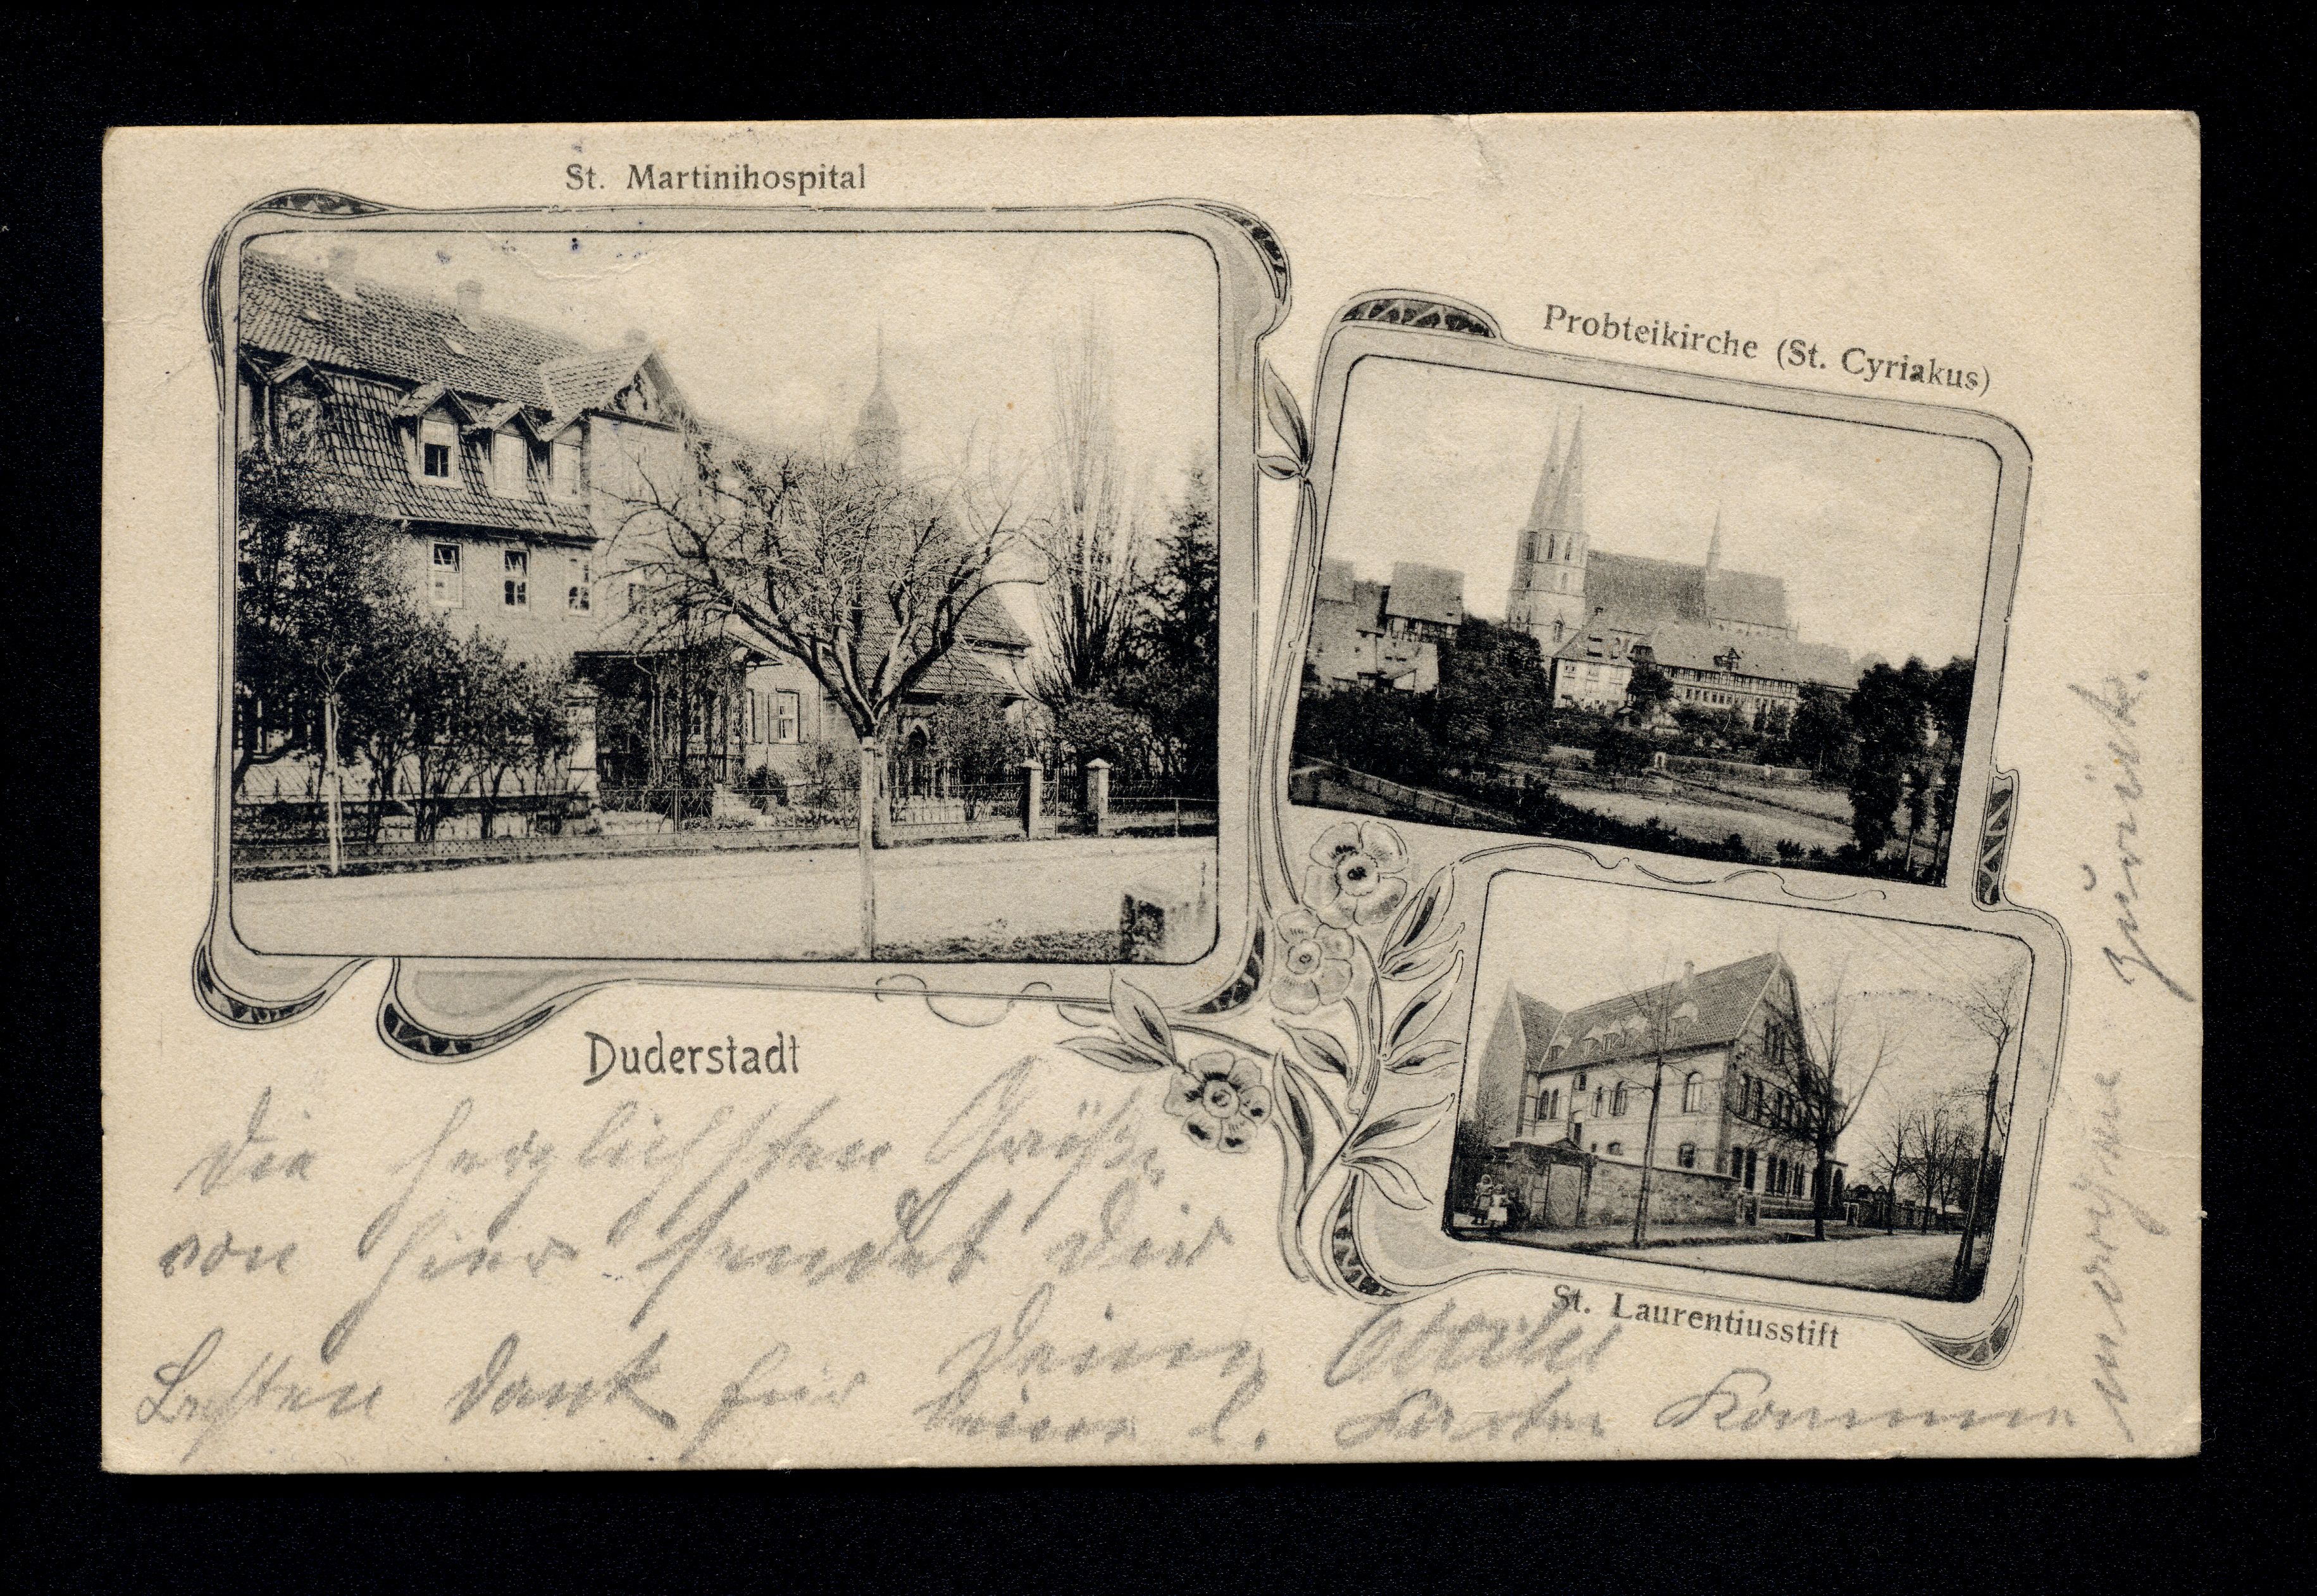 St. Martinihospital
Probteikirche (St. Cyriakus)
Duderstadt
St. Laurentiusstift
Die herzlichsten Grüße
von hier sendet Dir
Deine
Besten Dank für Deine l. Karte. Komme
morgen zurück.